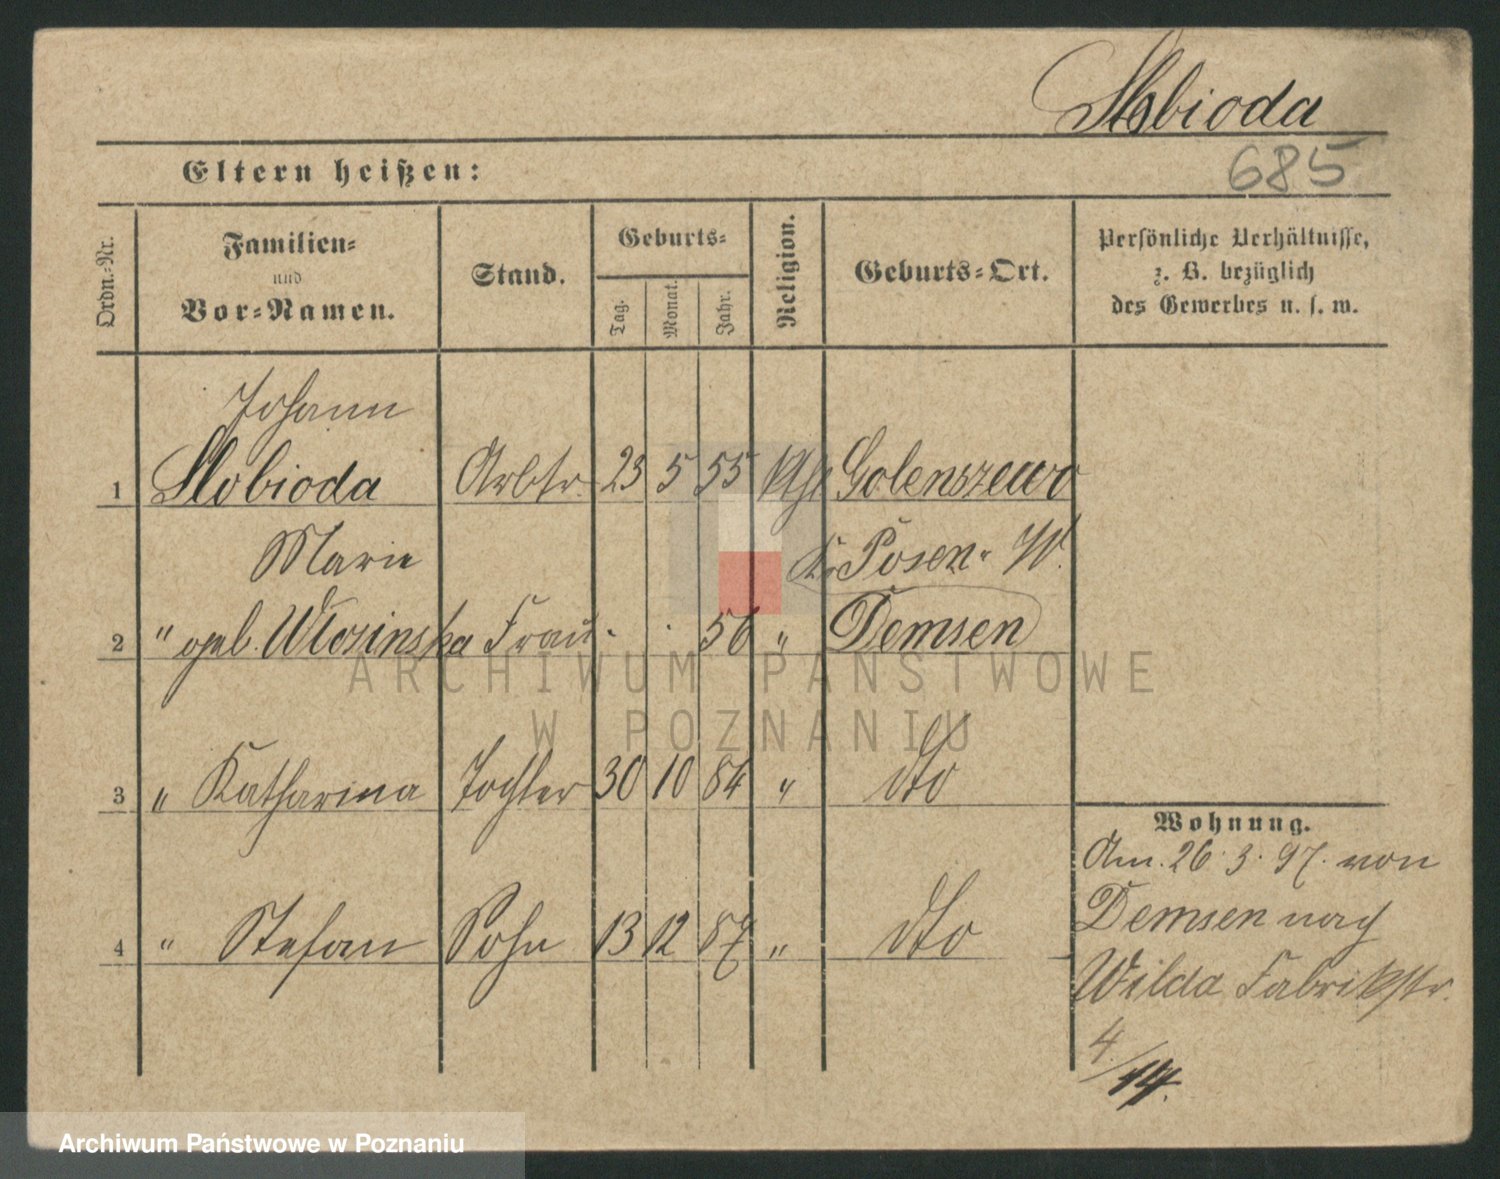 Skobioda
685
Eltern heißen:
Ordn.-Nr.
Familien-
und
Vor-Namen.
Stand.
Geburts-
Tag.
Monat.
Jahr.
Religion.
Geburts-Ort.
Persönliche Verhältnisse,
z. B. bezüglich
des Gewerbes u. s. w.
Johann
1 Skobioda Arbtr. 23 5 55 kth Golenszewo
Marie Kr. Posen W.
2 " geb. Wlosinska Frau . . 56 " Demsen
3 " Katharina Tochter 30 10 84 " dto
4 " Stefan Sohn 13 12 87 " dto
Wohnung.
Am. 26.3.97. von
Demsen nach
Wilda Fabrikstr.
4/14.
ARCHIWUM PAŃSTWOWE
W POZNANIU
Archiwum Państwowe w Poznaniu